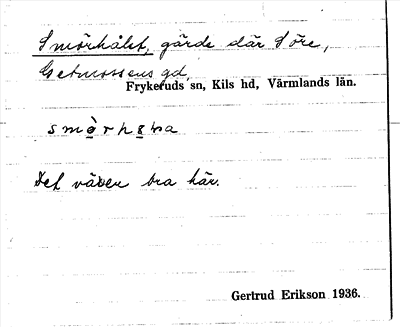 Smörhålet, gärde där S öre,
Getmossens gd,
Frykeruds sn, Kils hd, Värmlands län.
Det växer bra här.
Gertrud Erikson 1936.